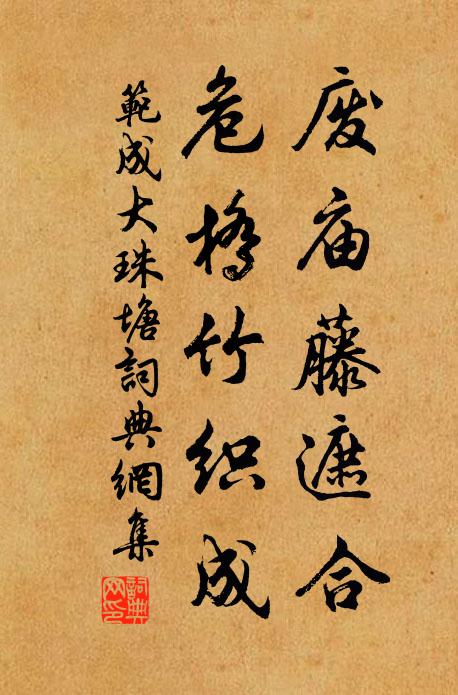 废庙藤遮合
危桥竹织成
範成大珠塘詞典網集
詞典
网印